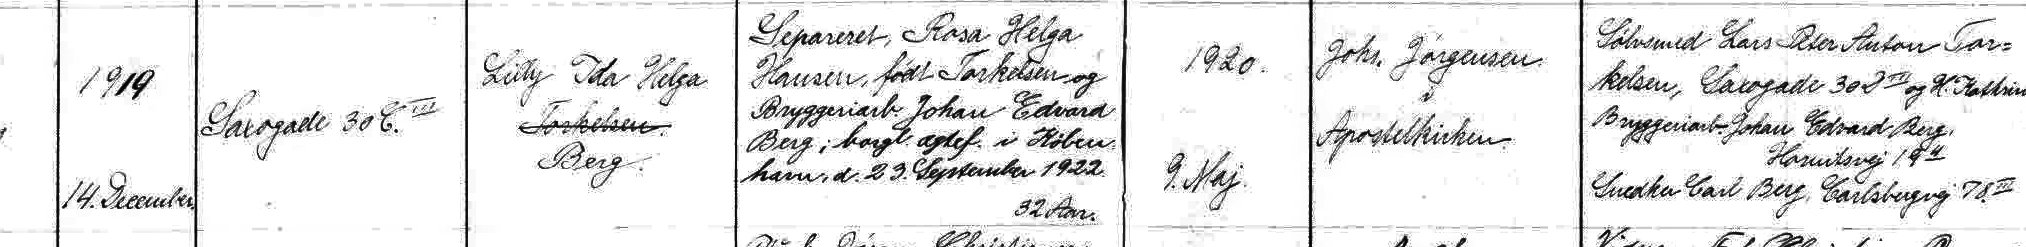 1919
14. December.
Saxogade 30 C. III
Lilly Ida Helga
Torkelsen.
Berg.
Separeret, Rosa Helga
Hansen, født Torkelsen og
Bryggeriarb. Johan Edvard
Berg; borgl. ægtef. i Köben
havn, d. 23. September 1922.
32 Aar.
1920.
9. Maj.
Johs. Jörgensen.
i
Apostelkirken
Sölvsmed Lars Peter Anton Tor=
kelsen, Saxogade 30 D III og H. Kathrine
Bryggeriarb. Johan Edvard Berg,
19 4
Snedker Carl Berg, Carlsbergvej 78. III